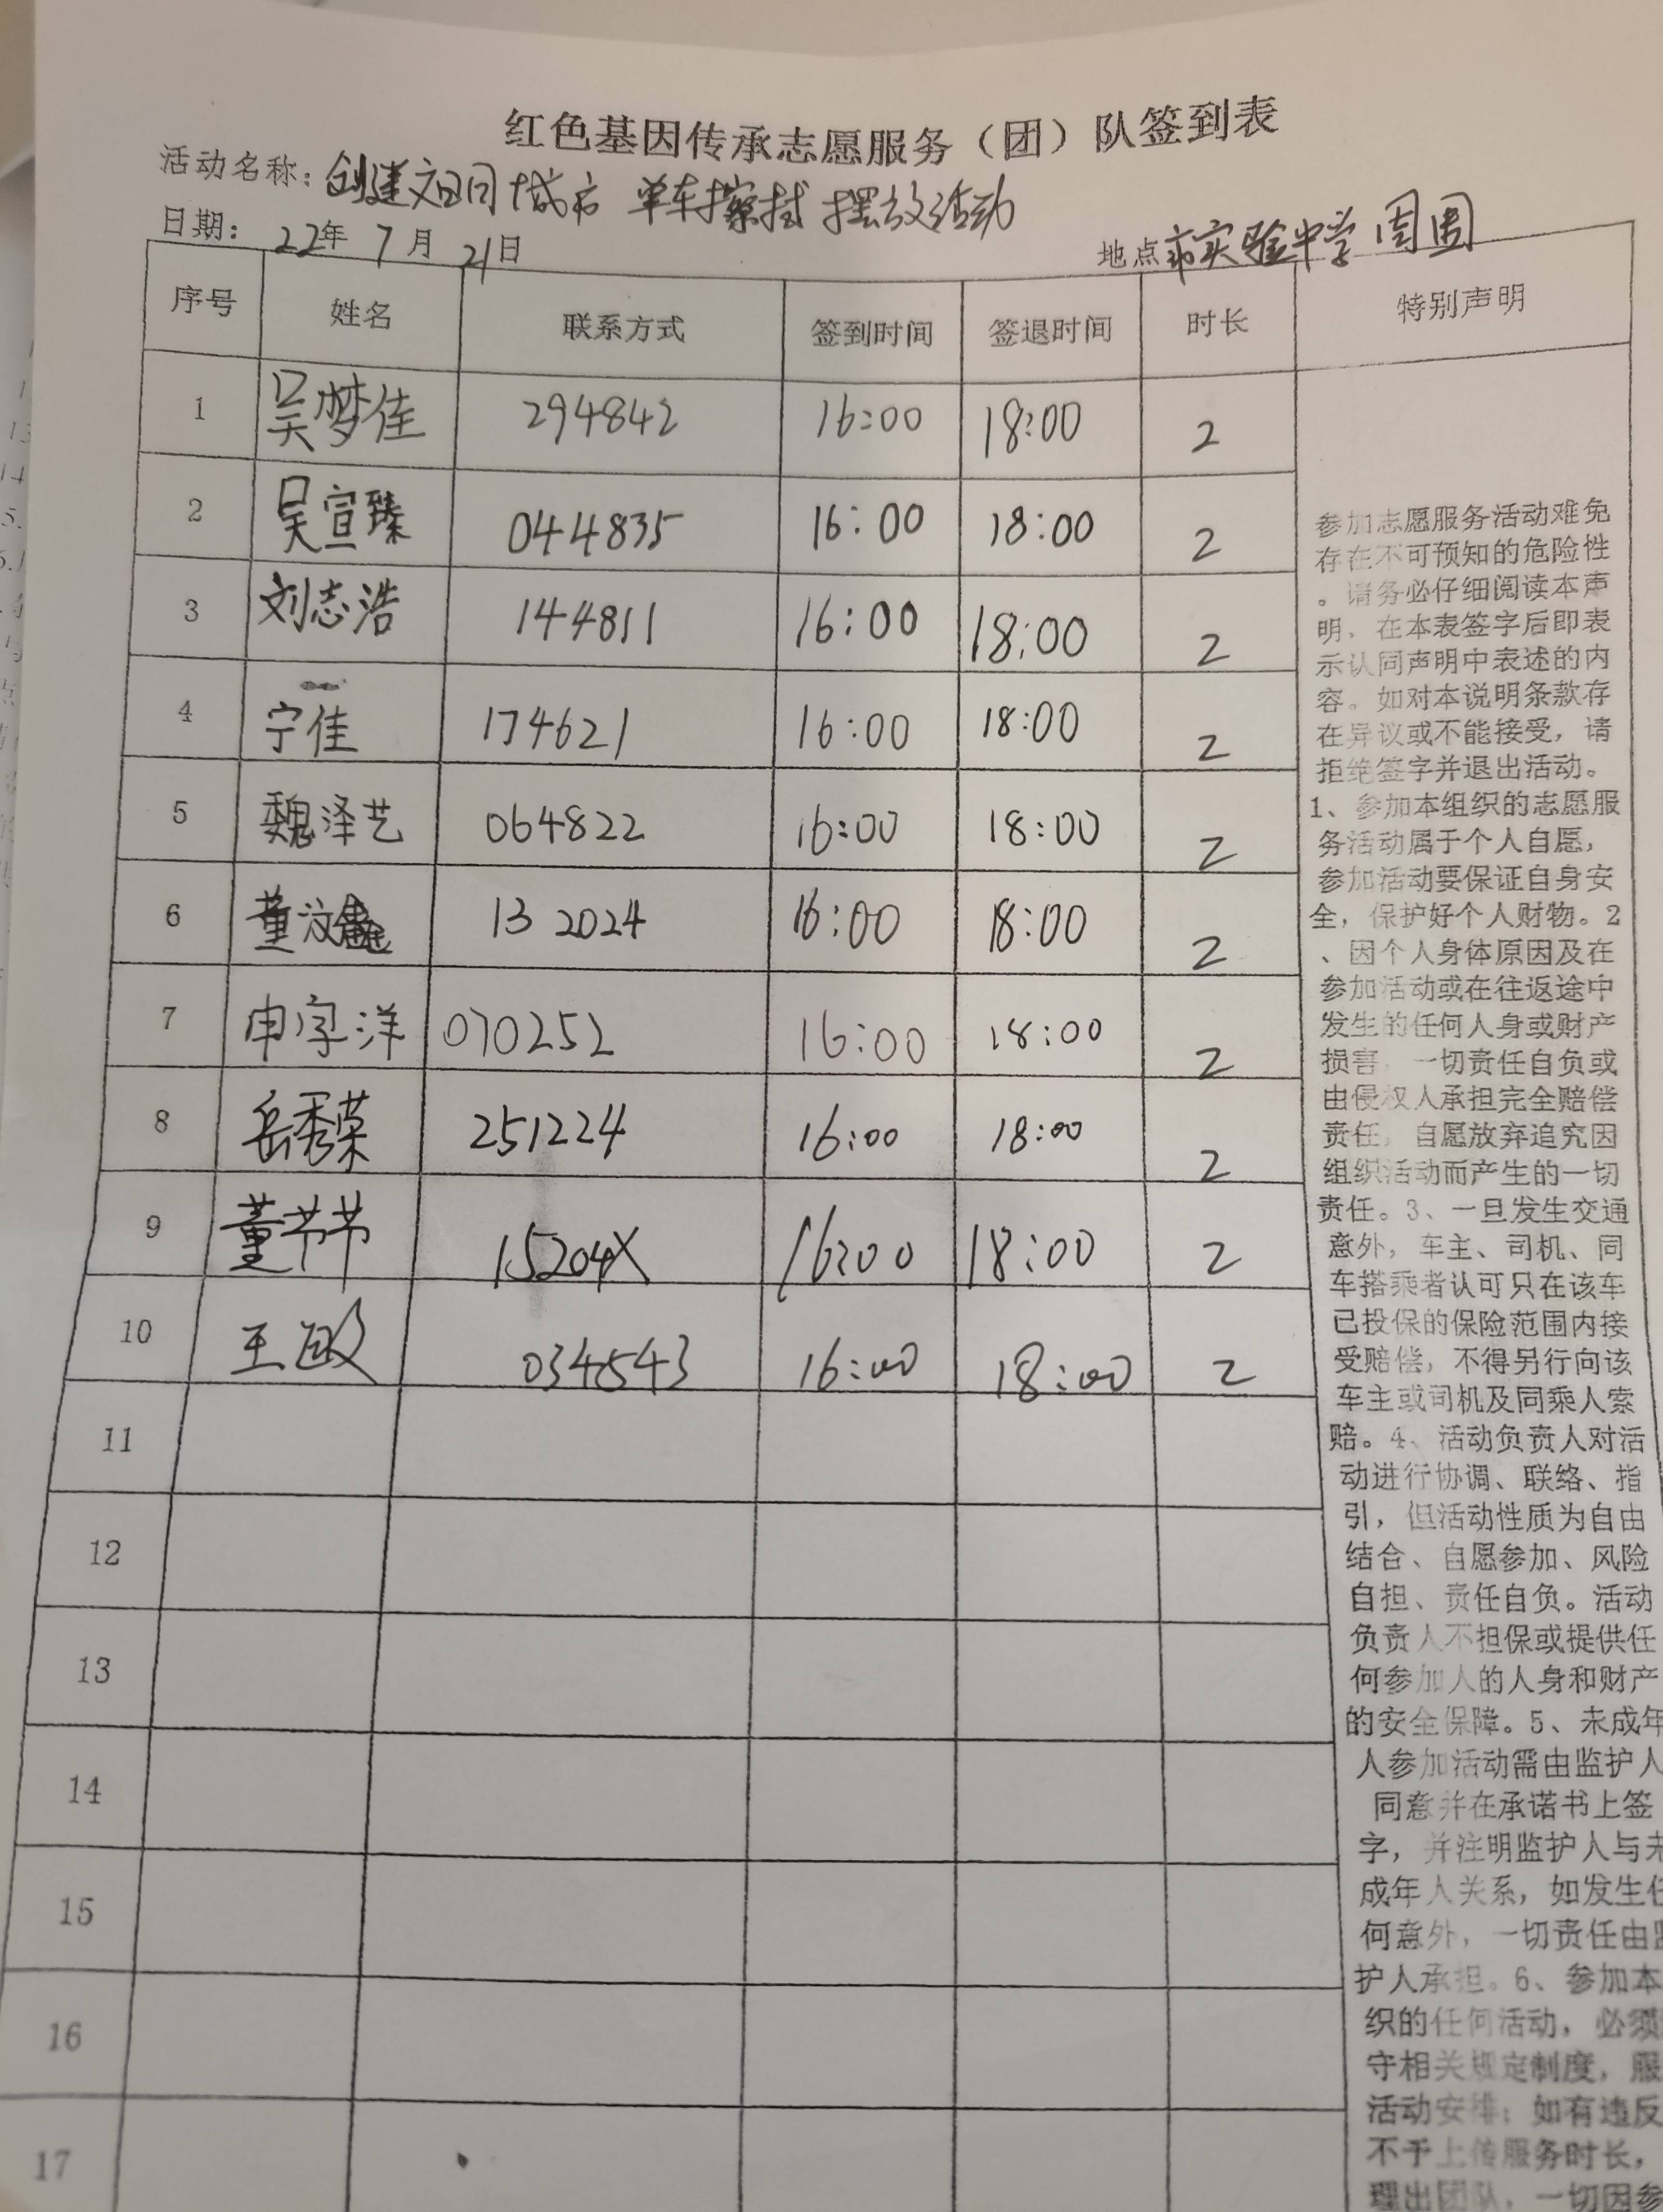 红色基因传承志愿服务（团）队签到表
活动名称：创建文明城市 单车擦拭摆放活动
日期：22年7月21日 地点 市实验中学周围
序号 姓名 联系方式 签到时间 签退时间 时长 特别声明
1 吴梦佳 294842 16:00 18:00 2
2 吴宣臻 044835 16:00 18:00 2
3 刘志浩 144811 16:00 18:00 2
4 宁佳 174621 16:00 18:00 2
5 魏泽艺 064822 16:00 18:00 2
6 董汶 13 2024 16:00 18:00 2
7 申字洋 070252 16:00 18:00 2
8 岳秀荣 251224 16:00 18:00 2
9 董节节 15204X 16:00 18:00 2
10 王敏 034543 16:00 18:00 2
11
12
13
14
15
16
17
参加志愿服务活动难免
存在不可预知的危险性
。请务必仔细阅读本声
明，在本表签字后即表
示认同声明中表述的内
容。如对本说明条款存
在异议或不能接受，请
拒绝签字并退出活动。
1、参加本组织的志愿服
务活动属于个人自愿，
参加活动要保证自身安
全，保护好个人财物。2
、因个人身体原因及在
参加活动或在往返途中
发生的任何人身或财产
损害，一切责任自负或
由侵权人承担完全赔偿
责任，自愿放弃追究因
组织活动而产生的一切
责任。3、一旦发生交通
意外，车主、司机、同
车搭乘者认可只在该车
已投保的保险范围内接
受赔偿，不得另行向该
车主或司机及同乘人索
赔。4、活动负责人对活
动进行协调、联络、指
引，但活动性质为自由
结合、自愿参加、风险
自担、责任自负。活动
负责人不担保或提供任
何参加人的人身和财产
的安全保障。5、未成年
人参加活动需由监护人
同意并在承诺书上签
字，并注明监护人与未
成年人关系，如发生任
何意外，一切责任由监
护人承担。6、参加本
织的任何活动，必须
守相关规定制度，服
活动安排；如有违反
不予上传服务时长，
理出团队，一切因参